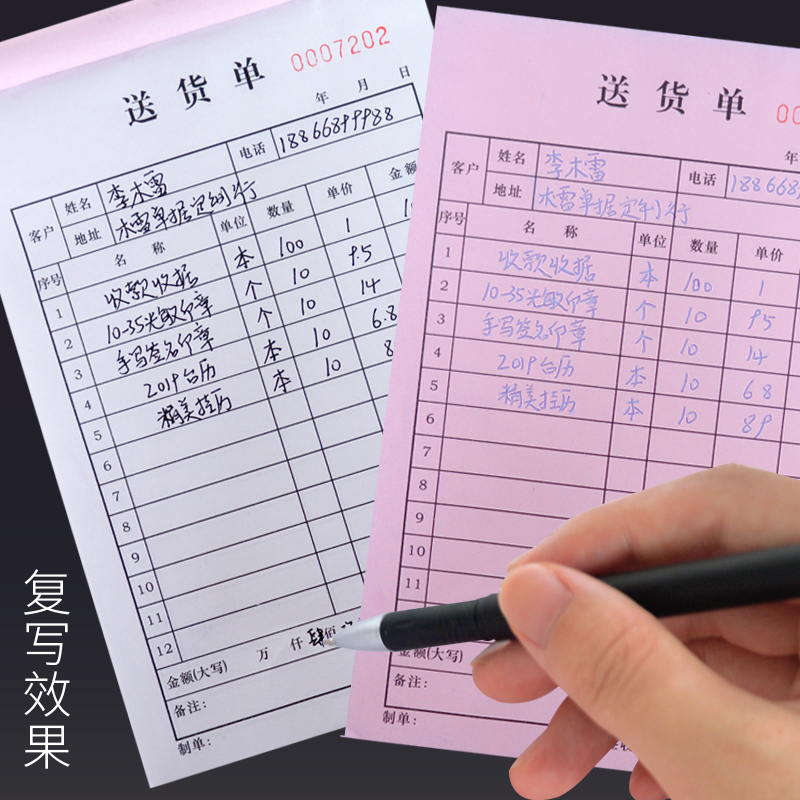 送货单 0007202
年 月 日
客户 姓名 李木雷 电话 18866899988
地址 木雪单据定制行
序号 名称 单位 数量 单价 金额
1 收款收据 本 100 1
2 10-35光敏印章 个 10 9.5
3 手写签名印章 个 10 14
4 2019台历 本 10 6.8
5 精美挂历 本 10 8
6
7
8
9
10
11
12
金额(大写) 万 仟 肆佰
备注:
制单:
送货单 00
年
客户 姓名 李木雷 电话 188668
地址 木雪单据定制行
序号 名称 单位 数量 单价
1 收款收据 本 100 1
2 10-35光敏印章 个 10 95
3 手写签名印章 个 10 14
4 2019台历 本 10 68
5 精美挂历 本 10 89
6
7
8
9
10
11
金额(大写)
备注:
制单:
复写效果